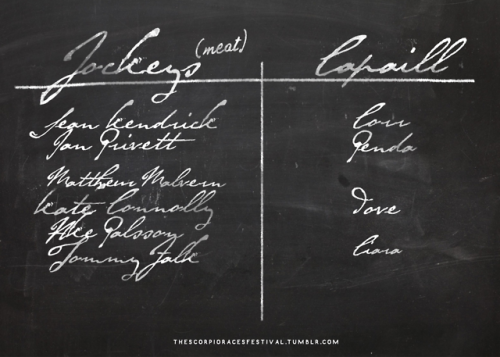 Jockeys (meat) Capaill
Sean Kendrick Corr
Ian Privett Penda
Matthew Malvern
Kate Connolly Dove
Ake Palsson
Tommy Falk Ciara
THESCORPIORACESFESTIVAL.TUMBLR.COM